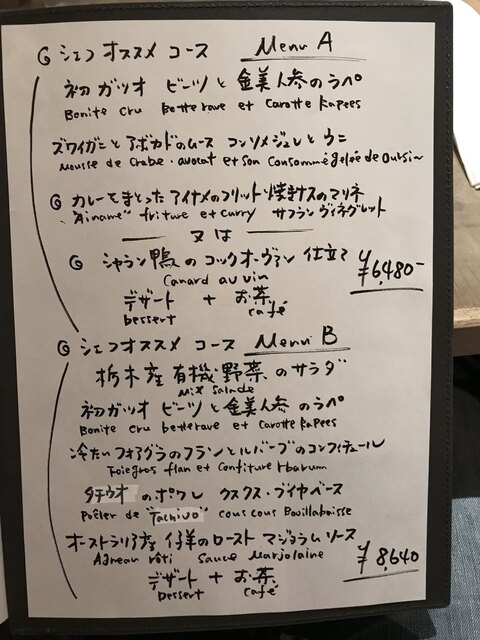 シェフ オススメ コース Menu A
初ガツオ ビーツと金美人参のラペ
Bonite cru Betterave et Carotte Rapees
ズワイガニとアボカドのムース コンソメジュレとウニ
Mousse de Crabe・avocat et son consommé gelée de Oursin
カレーをまとった アイナメのフリット 焼きナスのマリネ
"Ainame" friture et curry サフランヴィネグレット
又は
シャラン鴨のコックオーヴァン仕立て ¥6,480-
Canard au vin
デザート + お茶
Dessert café
シェフオススメ コース Menu B
栃木産 有機野菜のサラダ
Mix Salade
初ガツオ ビーツと金美人参のラペ
Bonite cru betterave et Carotte Rapees
冷たいフォアグラのフランとルバーブのコンフィチュール
Foiegras flan et Confiture rbarum
タチウオのポワレ クスクス・ブイヤベース
Poêler de "Tachiuo" cous cous Bouillabaisse
オーストラリア産 仔羊のロースト マジョラムソース
Agneau rôti Sauce Marjolaine ¥8,640
デザート + お茶
Dessert café